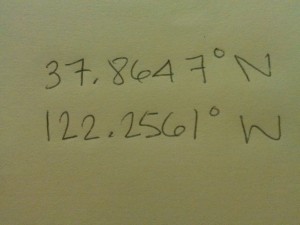 37.8647° N
122.2561° W